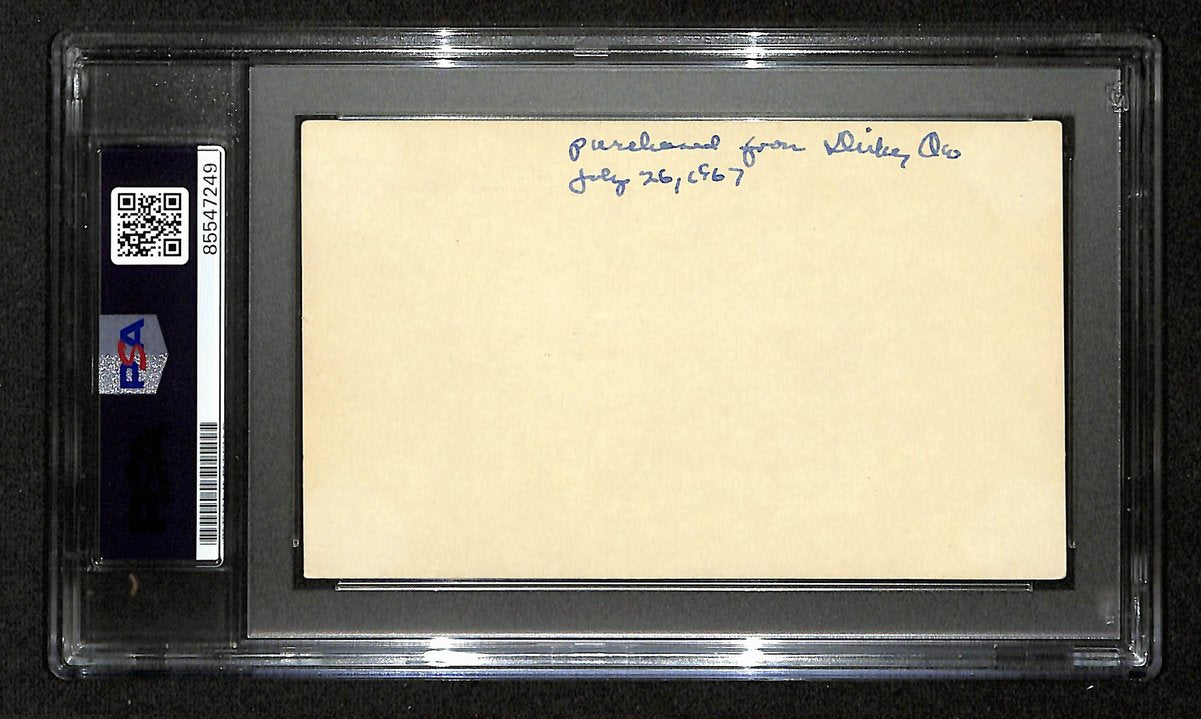 purchased from Dickey Ow
July 26, 1967
85547249
PSA